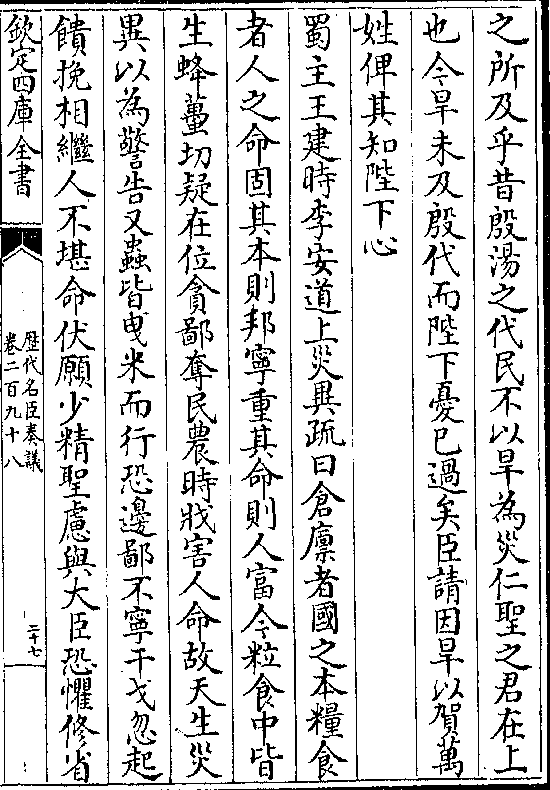 之所及乎昔殷湯之代民不以旱為災仁聖之君在上
也今旱未及殷代而陛下憂已過矣臣請因旱以賀萬
姓俾其知陛下心
蜀主王建時李安道上災異疏曰倉廪者國之本糧食
者人之命固其本則邦寧重其命則人富今粒食中皆
生蜂蠆切疑在位貪鄙奪民農時戕害人命故天生災
異以為警告又蟲皆曳米而行恐邊鄙不寧干戈忽起
饋挽相繼人不堪命伏願少精聖慮與大臣恐懼修省
欽定四庫全書
歷代名臣奏議
卷二百九十八
二十七